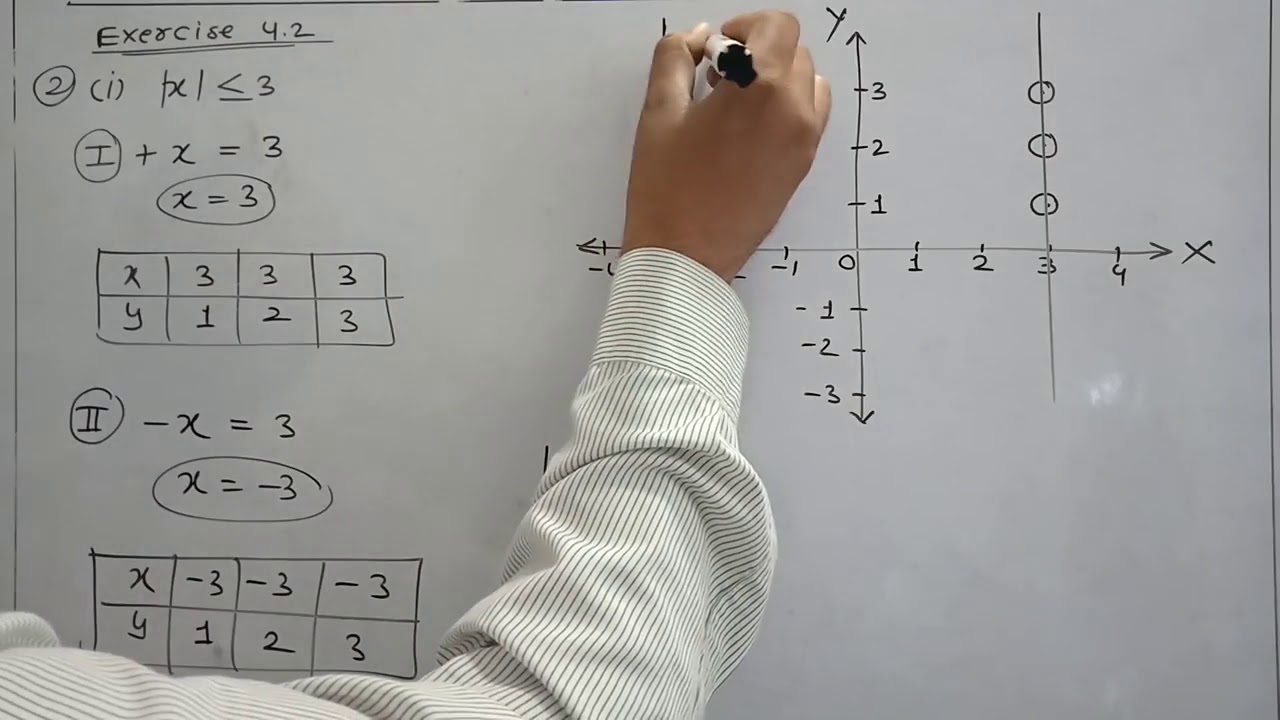 Exercise 4.2
② (i) |x| ≤ 3
Ⓘ + x = 3
x = 3
x 3 3 3
y 1 2 3
Ⅱ - x = 3
x = -3
x -3 -3 -3
y 1 2 3
Y
3
2
1
-1 0 1 2 3 4 X
-1
-2
-3